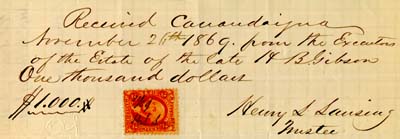 Received Canandaigua
November 26th 1869. from the Executors
of the Estate of the late H B Gibson
One thousand dollars
$1.000.
Henry S Lansing
Trustee